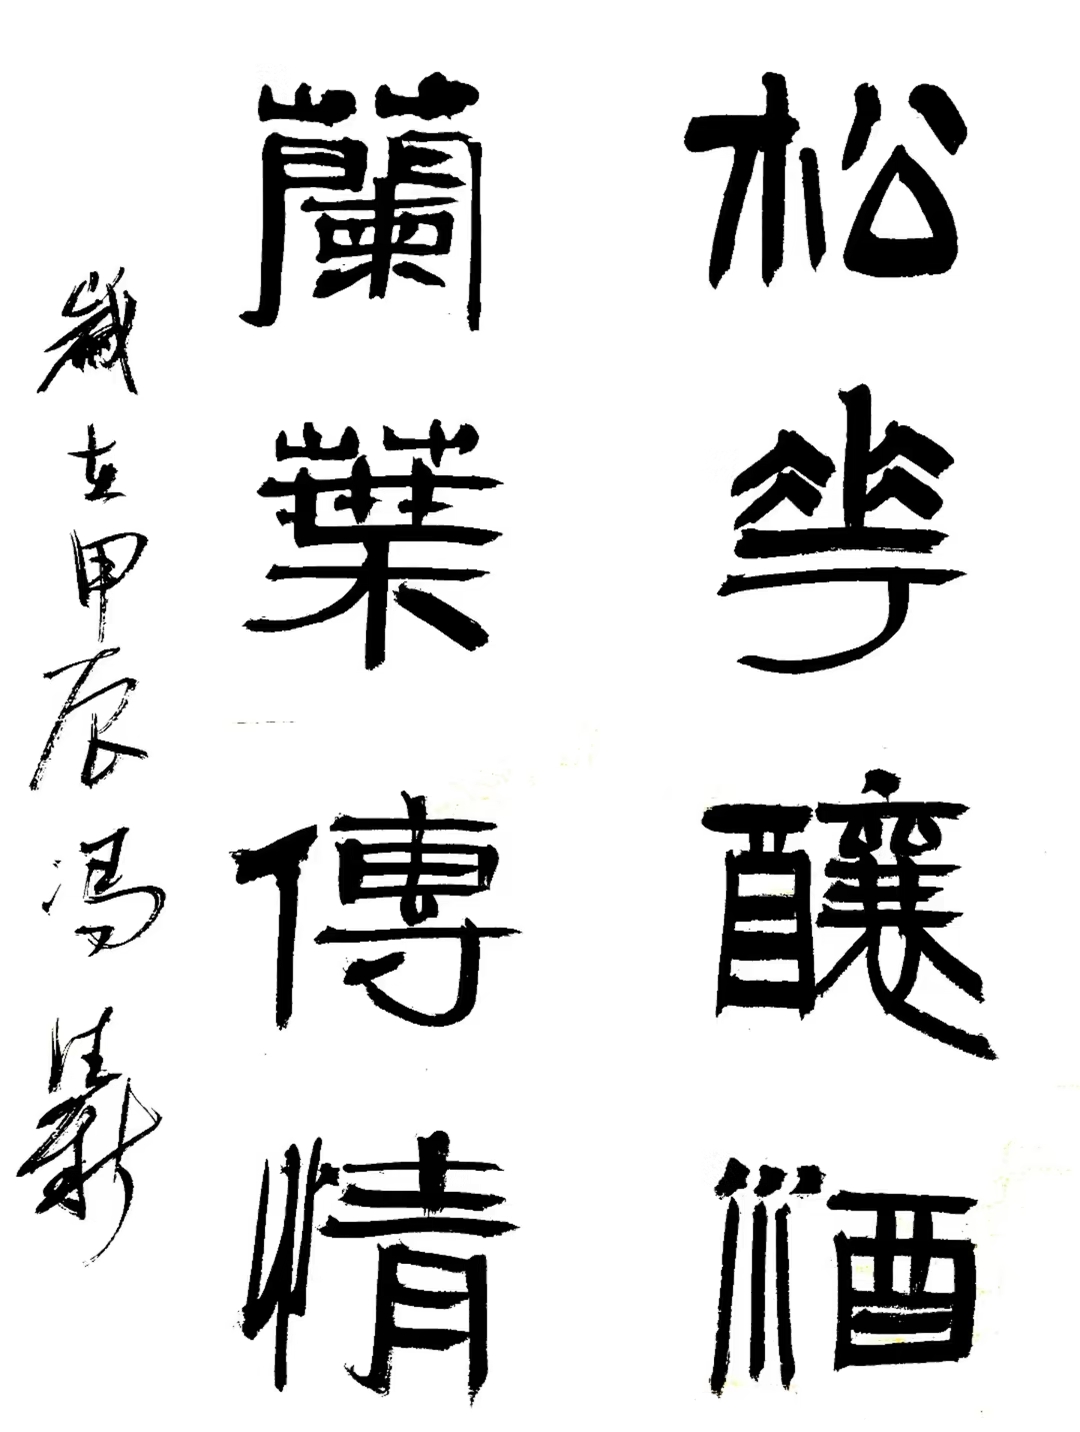 松花釀酒
蘭葉傳情
歲在甲辰馮